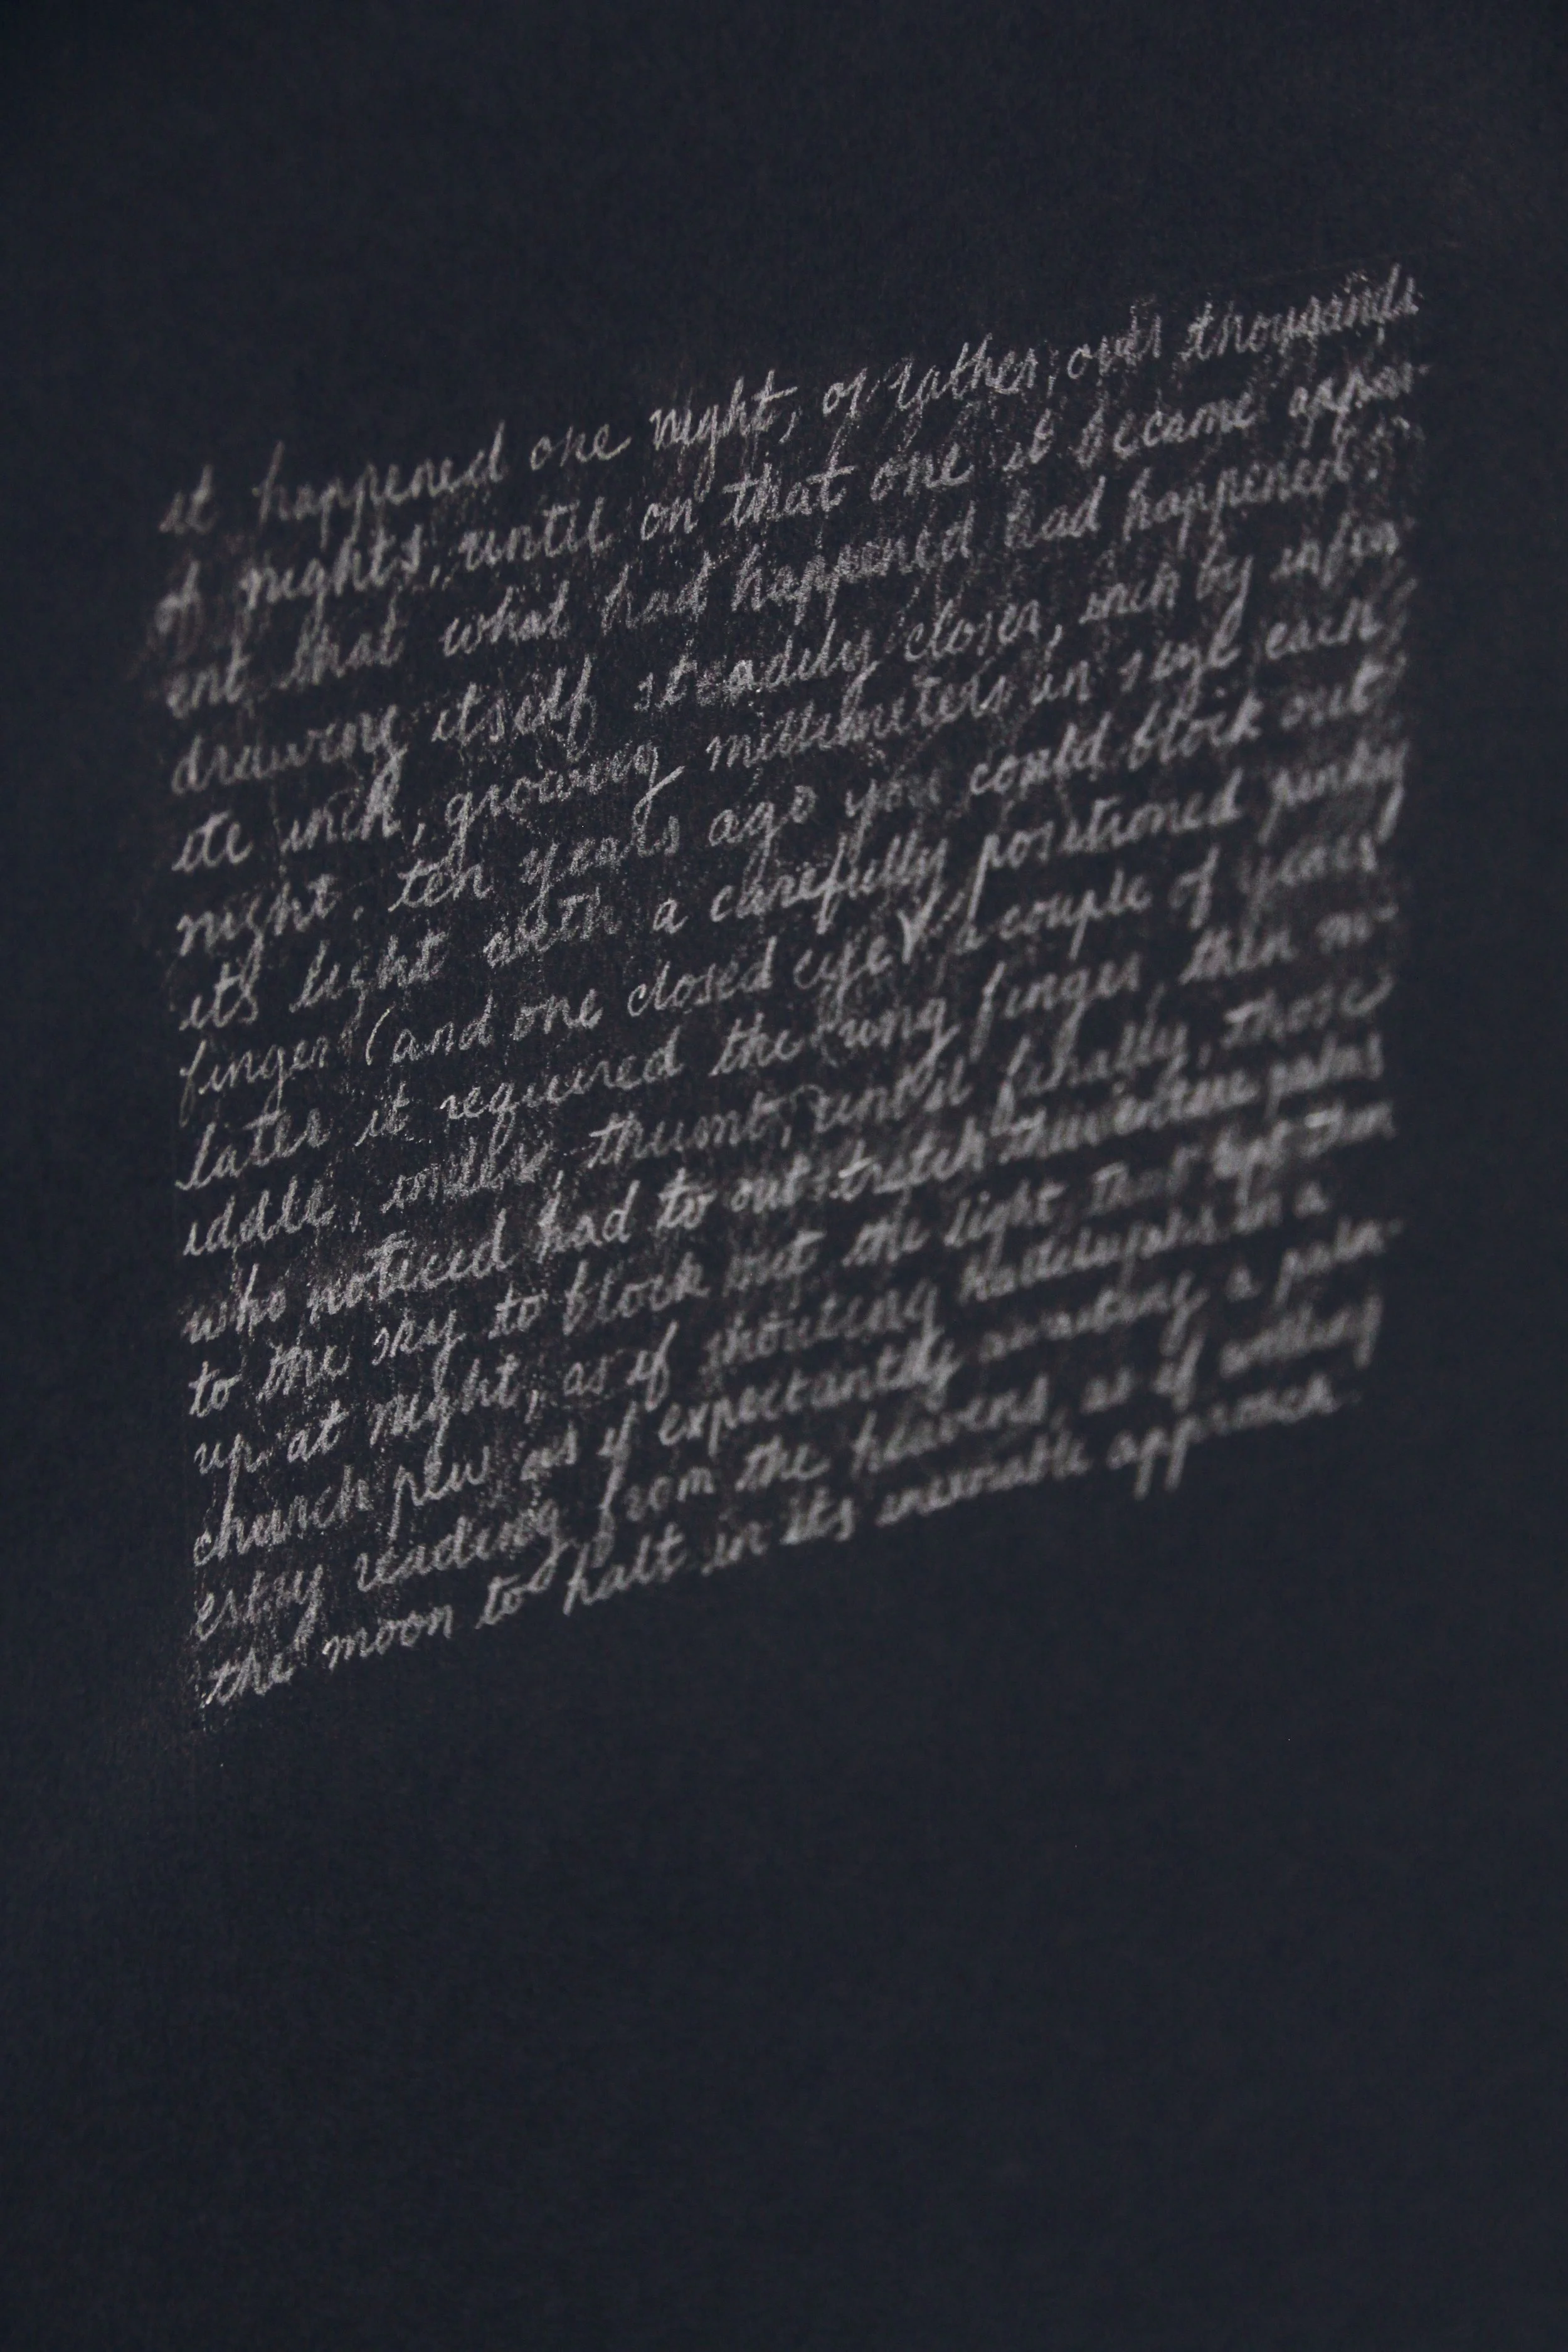 it happened one night, or rather, over thousands
of nights, until on that one it became appar-
ent that what had happened had happened:
drawing itself steadily closer, inch by infin
ite inch, growing millimeters in size each
night. ten years ago you could block out
its light with a carefully positioned pinky
finger (and one closed eye). a couple of years
later it required the ring finger, then m-
iddle, index, thumb, until finally, those
who noticed had to outstretch their entire palms
to the sky to block out the light that kept them
up at night, as if shouting hallelujahs in a
church pew as if expectantly awaiting a palm-
estry reading from the heavens, as if willing
the moon to halt in its inexorable approach.